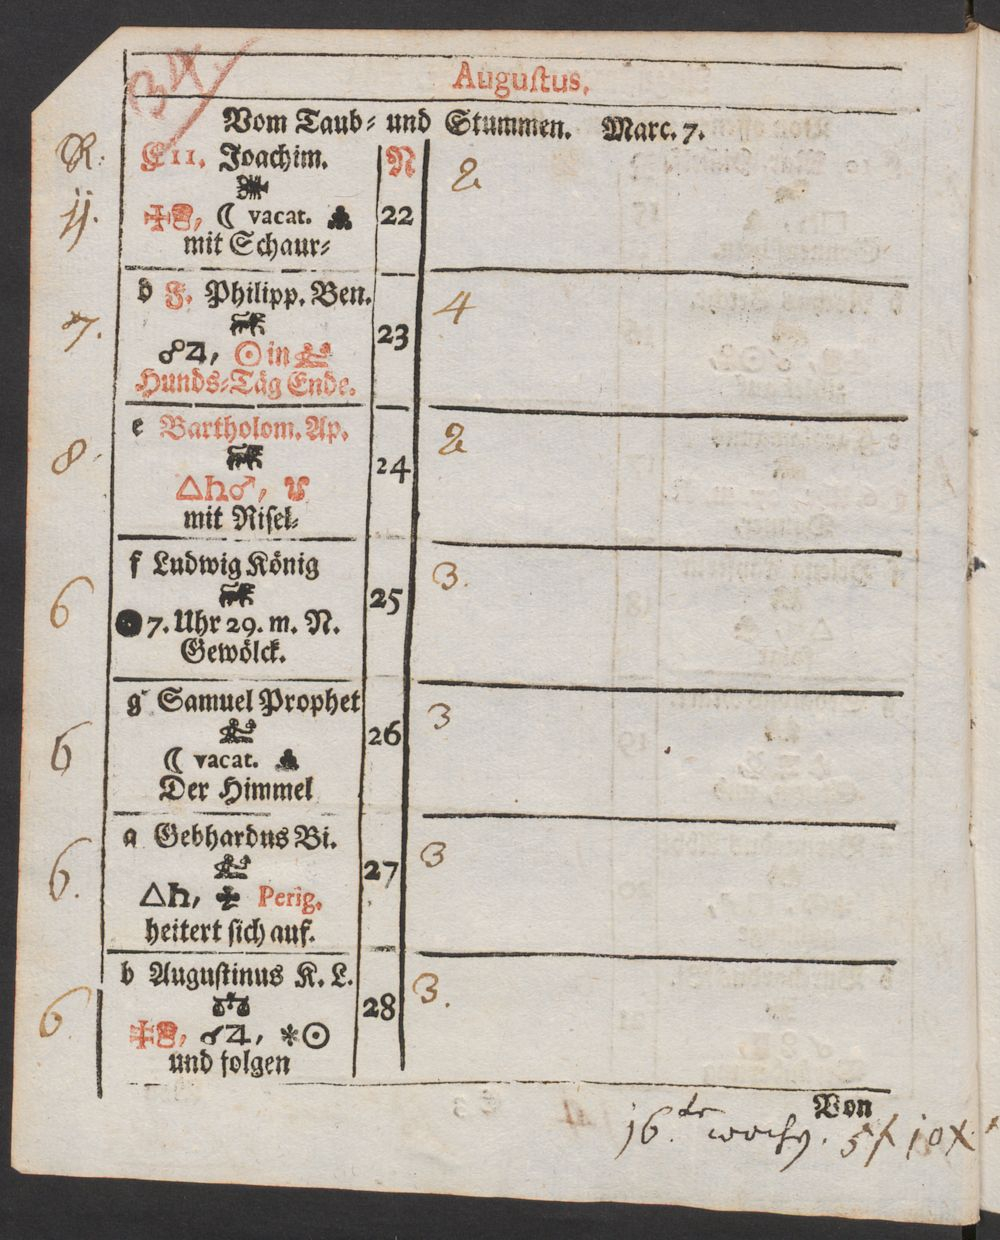 34.
Auguſtus.
Vom Taub- und Stummen. Marc. 7.
R.
E 11. Joachim. N 2
jj. ☾ vacat. 22
mit Schaur-
d F. Philipp. Ben. 4
7. ☍♃, ☉ in 23
Hunds-Täg Ende.
e Bartholom. Ap. 2
8. △♄♂, 24
mit Riſel-
f Ludwig König 3.
6 25
●7. Uhr 29. m. N.
Gewölck.
g Samuel Prophet 3
6 ☾ vacat. 26
Der Himmel
a Gebhardus Bi. 3
6. △♄, Perig. 27
heitert ſich auf.
b Auguſtinus K. L. 3.
6 ☌♃, ✶☉ 28
und folgen
Von
16.te